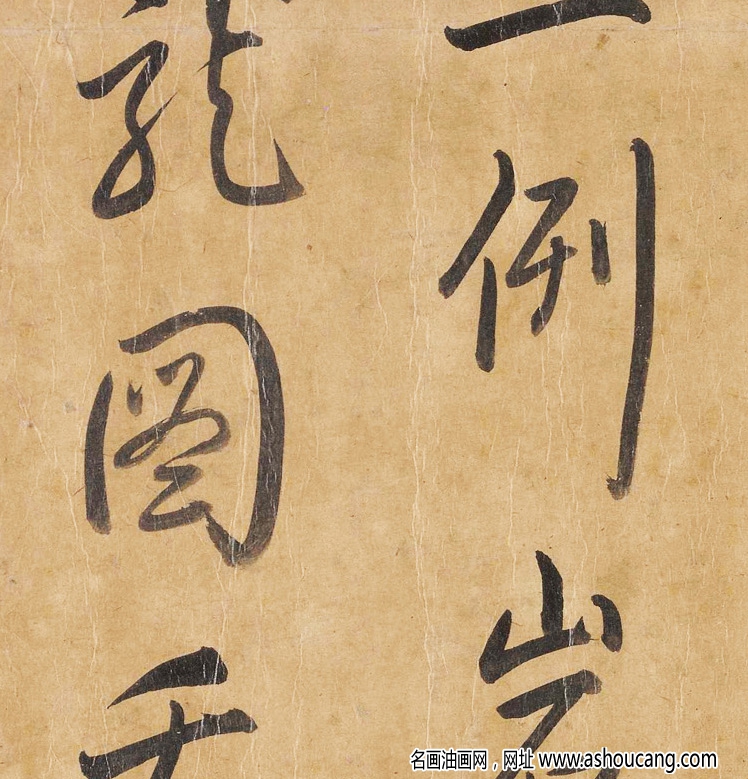 一例
龍圖千
名画油画网，网址 www.ashoucang.com